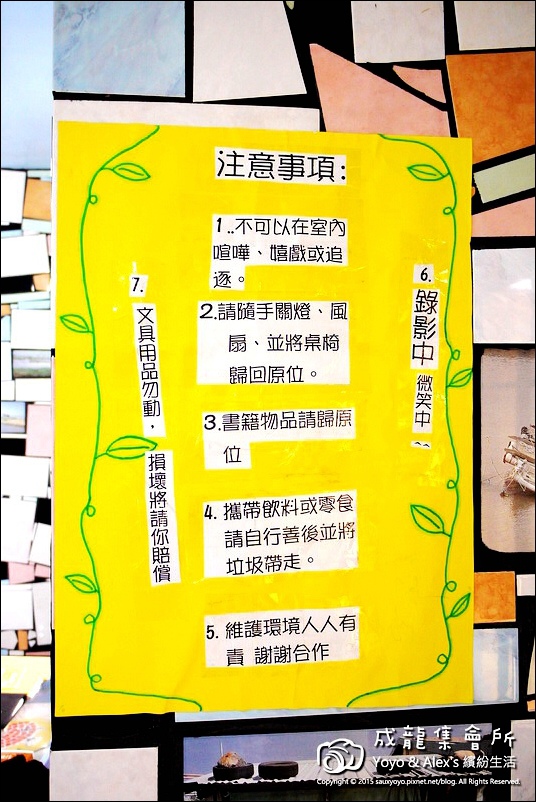 注意事項:
1..不可以在室內
喧嘩、嬉戲或追
逐。
2.請隨手關燈、風
扇、並將桌椅
歸回原位。
3.書籍物品請歸原
位
4. 攜帶飲料或零食
請自行善後並將
垃圾帶走。
5. 維護環境人人有
責 謝謝合作
6. 錄影中 微笑中 ~~
7. 文具用品勿動, 損壞將請你賠償
成龍集會所
Yoyo & Alex's 繽紛生活
Copyright © 2015 sauxyoyo.pixnet.net/blog. All Rights Reserved.